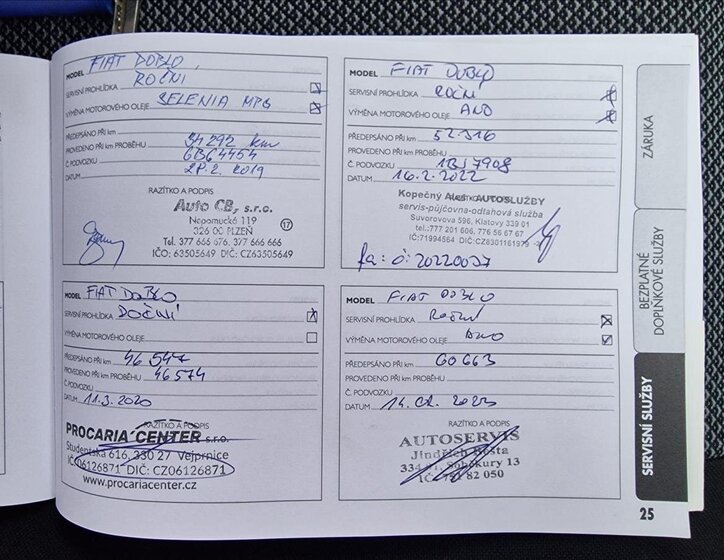 MODEL FIAT DOBLO
ROČNÍ
SERVISNÍ PROHLÍDKA
SELENIA
VÝMĚNA MOTOROVÉHO OLEJE
PŘEDEPSÁNO PŘI km
34292 km
PROVEDENO PŘI km PROBĚHU
6B64454
Č. PODVOZKU
DATUM 2019
RAZÍTKO A PODPIS
Auto CB, s.r.o.
Nepomucká 119
326 00 PLZEŇ
17
Tel. 377 665 676, 377 666 666
IČO: 63505649 DIČ: CZ63505649
MODEL FIAT DOBLO
SERVISNÍ PROHLÍDKA ROČNÍ
VÝMĚNA MOTOROVÉHO OLEJE ANO
PŘEDEPSÁNO PŘI km 52.316
PROVEDENO PŘI km PROBĚHU
Č. PODVOZKU
DATUM 16.2.2022
RAZÍTKO A PODPIS
Kopečný AUTOSLUŽBY
servis-půjčovna-odtahová služba
Suvorovova 596, Klatovy 339 01
tel.:777 201 606, 776 56 67 67
IČ:71994564 DIČ:CZ8301161978
MODEL FIAT DOBLO
SERVISNÍ PROHLÍDKA ROČNÍ
VÝMĚNA MOTOROVÉHO OLEJE
PŘEDEPSÁNO PŘI km 46 547
PROVEDENO PŘI km PROBĚHU 46574
Č. PODVOZKU
DATUM 11.3.2020
RAZÍTKO A PODPIS
PROCARIA CENTER s.r.o.
Studentská 616, 330 27 Vejprnice
IČ:06126871 DIČ: CZ06126871
www.procariacenter.cz
MODEL FIAT DOBLO
SERVISNÍ PROHLÍDKA Roční
VÝMĚNA MOTOROVÉHO OLEJE ANO
PŘEDEPSÁNO PŘI km 60663
PROVEDENO PŘI km PROBĚHU
Č. PODVOZKU
DATUM 14. 02. 2023
RAZÍTKO A PODPIS
AUTOSERVIS
Jindřich
13
82 050
ZÁRUKA
BEZPLATNÉ
DOPLŇKOVÉ SLUŽBY
SERVISNÍ SLUŽBY
25